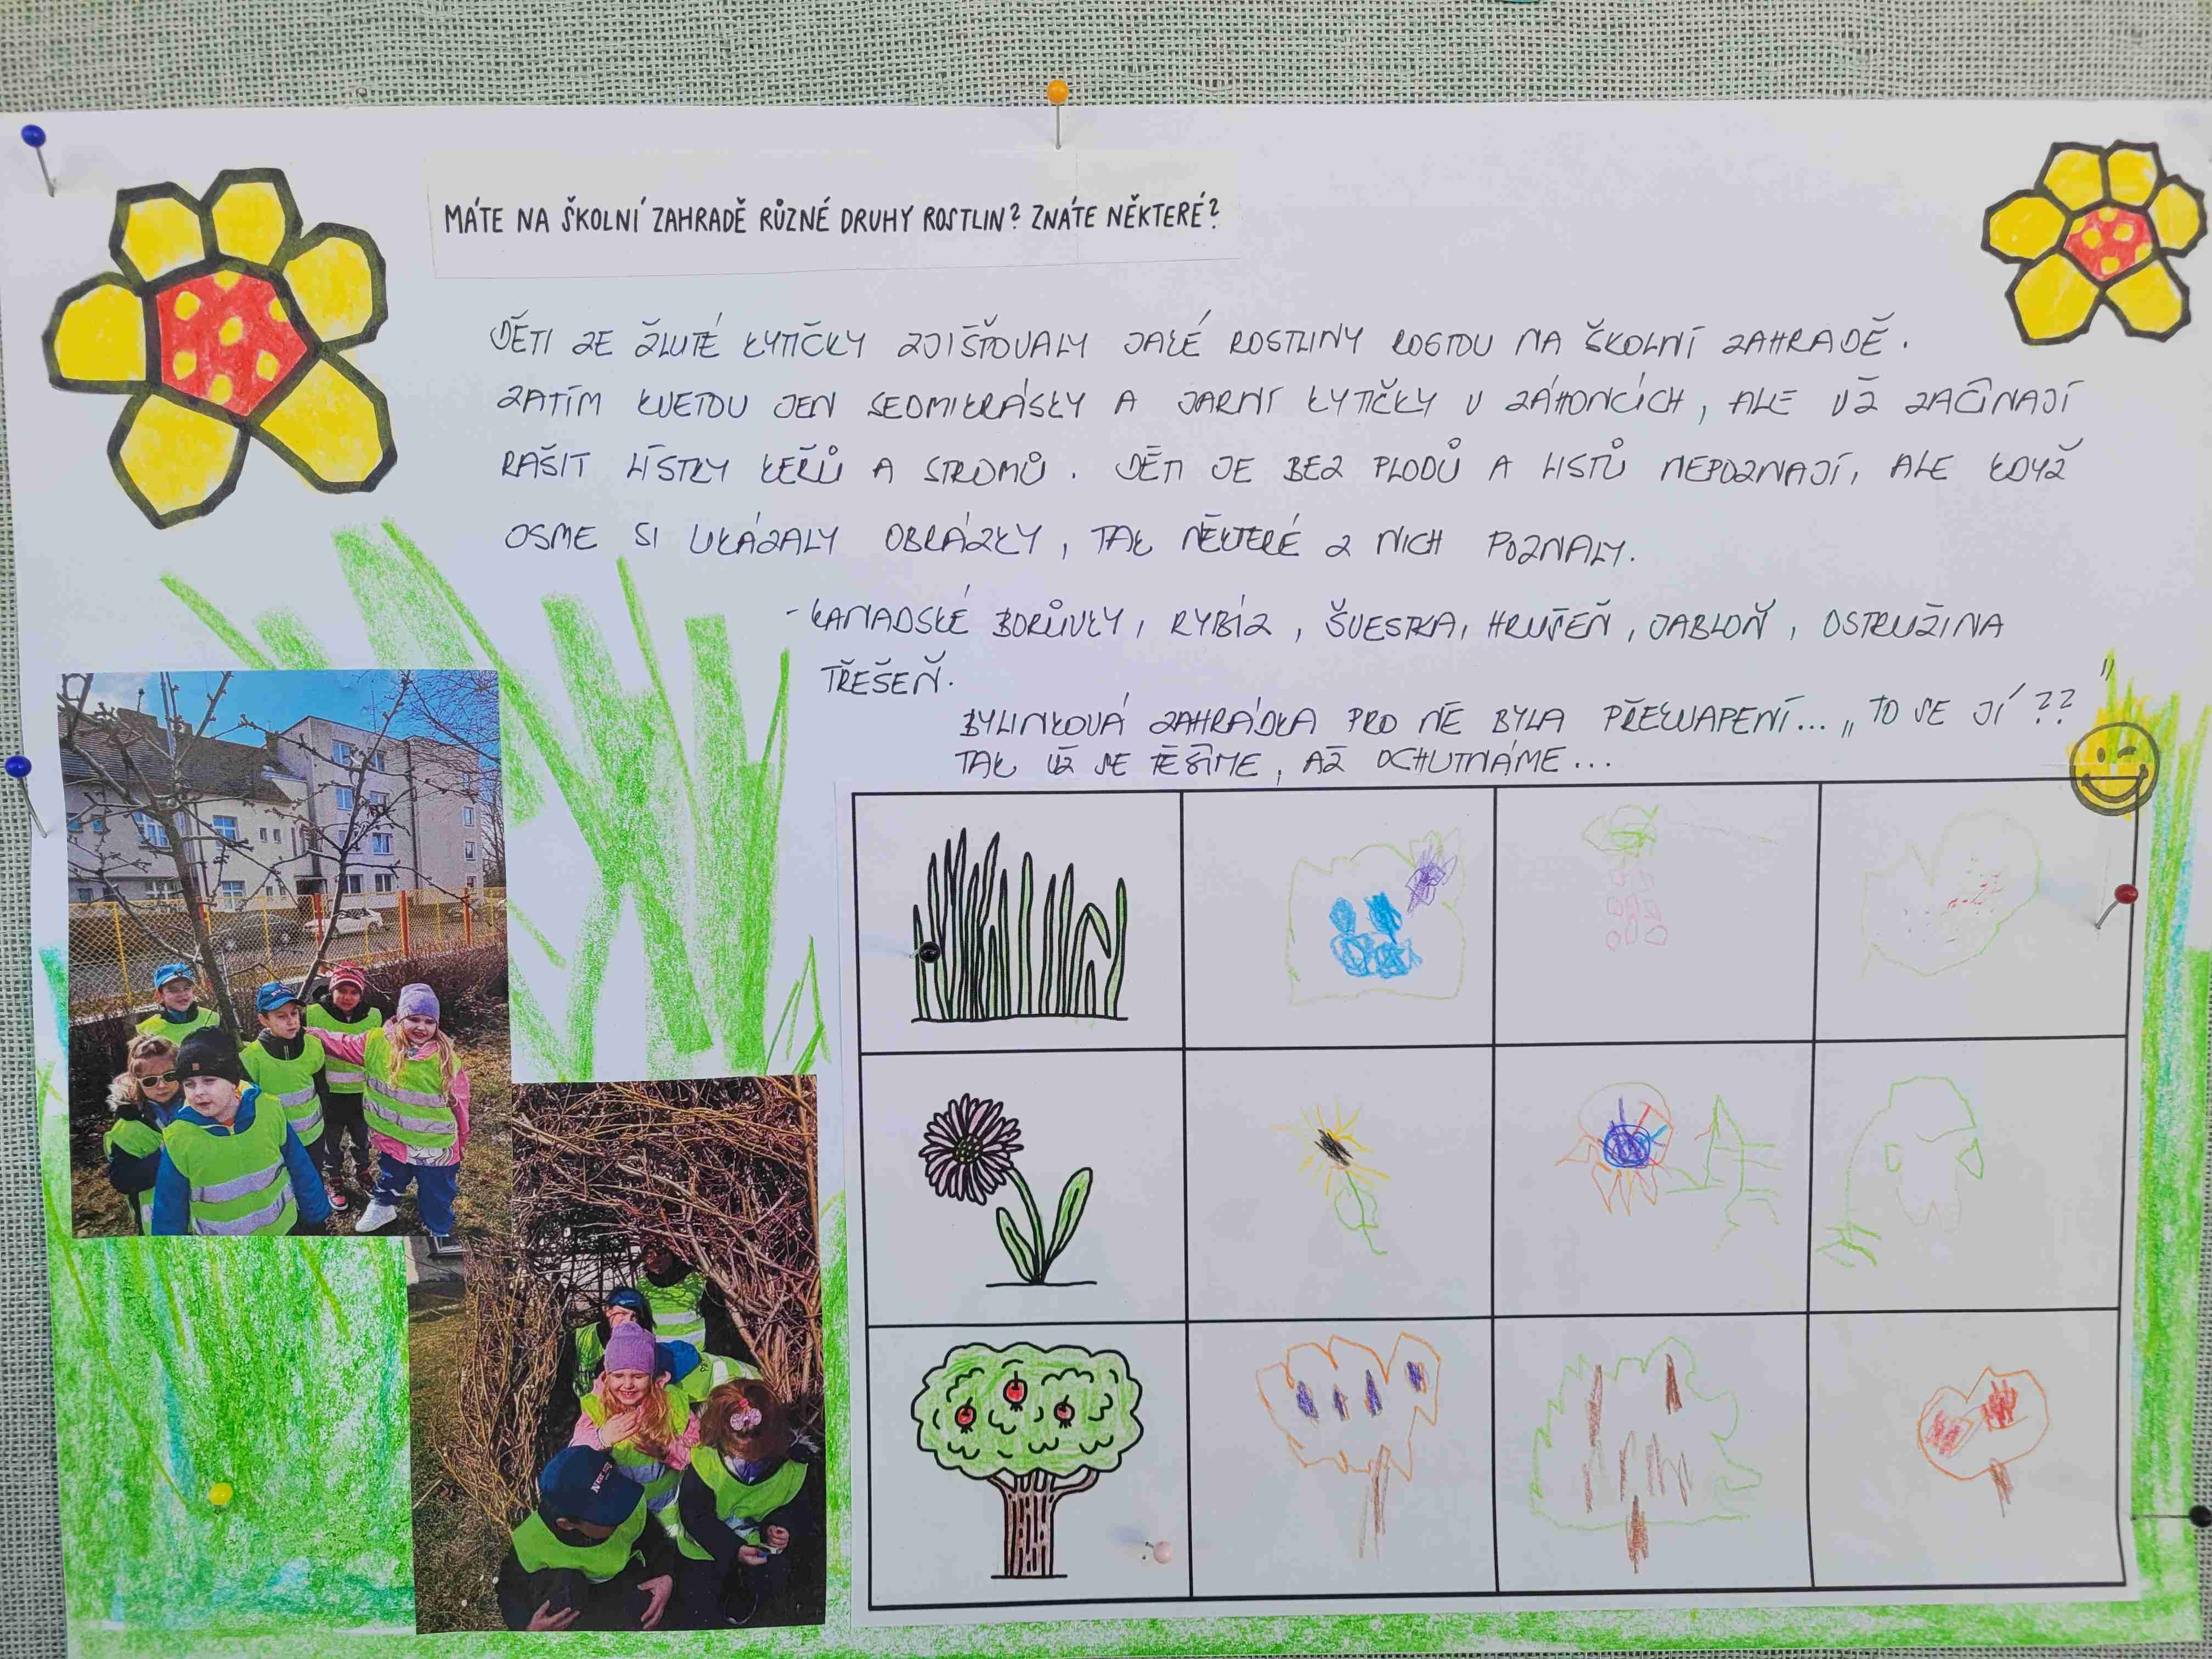 MÁTE NA ŠKOLNÍ ZAHRADĚ RŮZNÉ DRUHY ROSTLIN? ZNÁTE NĚKTERÉ?
DĚTI ZE ŽLUTÉ KYTIČKY ZJIŠŤOVALY JAKÉ ROSTLINY ROSTOU NA ŠKOLNÍ ZAHRADĚ.
ZATÍM KVETOU JEN SEDMIKRÁSKY A JARNÍ KYTIČKY V ZÁHONCÍCH, ALE UŽ ZAČÍNAJÍ
RAŠIT LÍSTKY KEŘŮ A STROMŮ. DĚTI JE BEZ PLODŮ A LISTŮ NEPOZNAJÍ, ALE KDYŽ
JSME SI UKÁZALY OBRÁZKY, TAK NĚKTERÉ Z NICH POZNALY.
- KANADSKÉ BORŮVKY, RYBÍZ, ŠVESTKA, HRUŠEŇ, JABLOŇ, OSTRUŽINA
TŘEŠEŇ.
BYLINKOVÁ ZAHRÁDKA PRO NĚ BYLA PŘEKVAPENÍ... „TO SE JÍ??"
TAK UŽ SE TĚŠÍME, AŽ OCHUTNÁME...